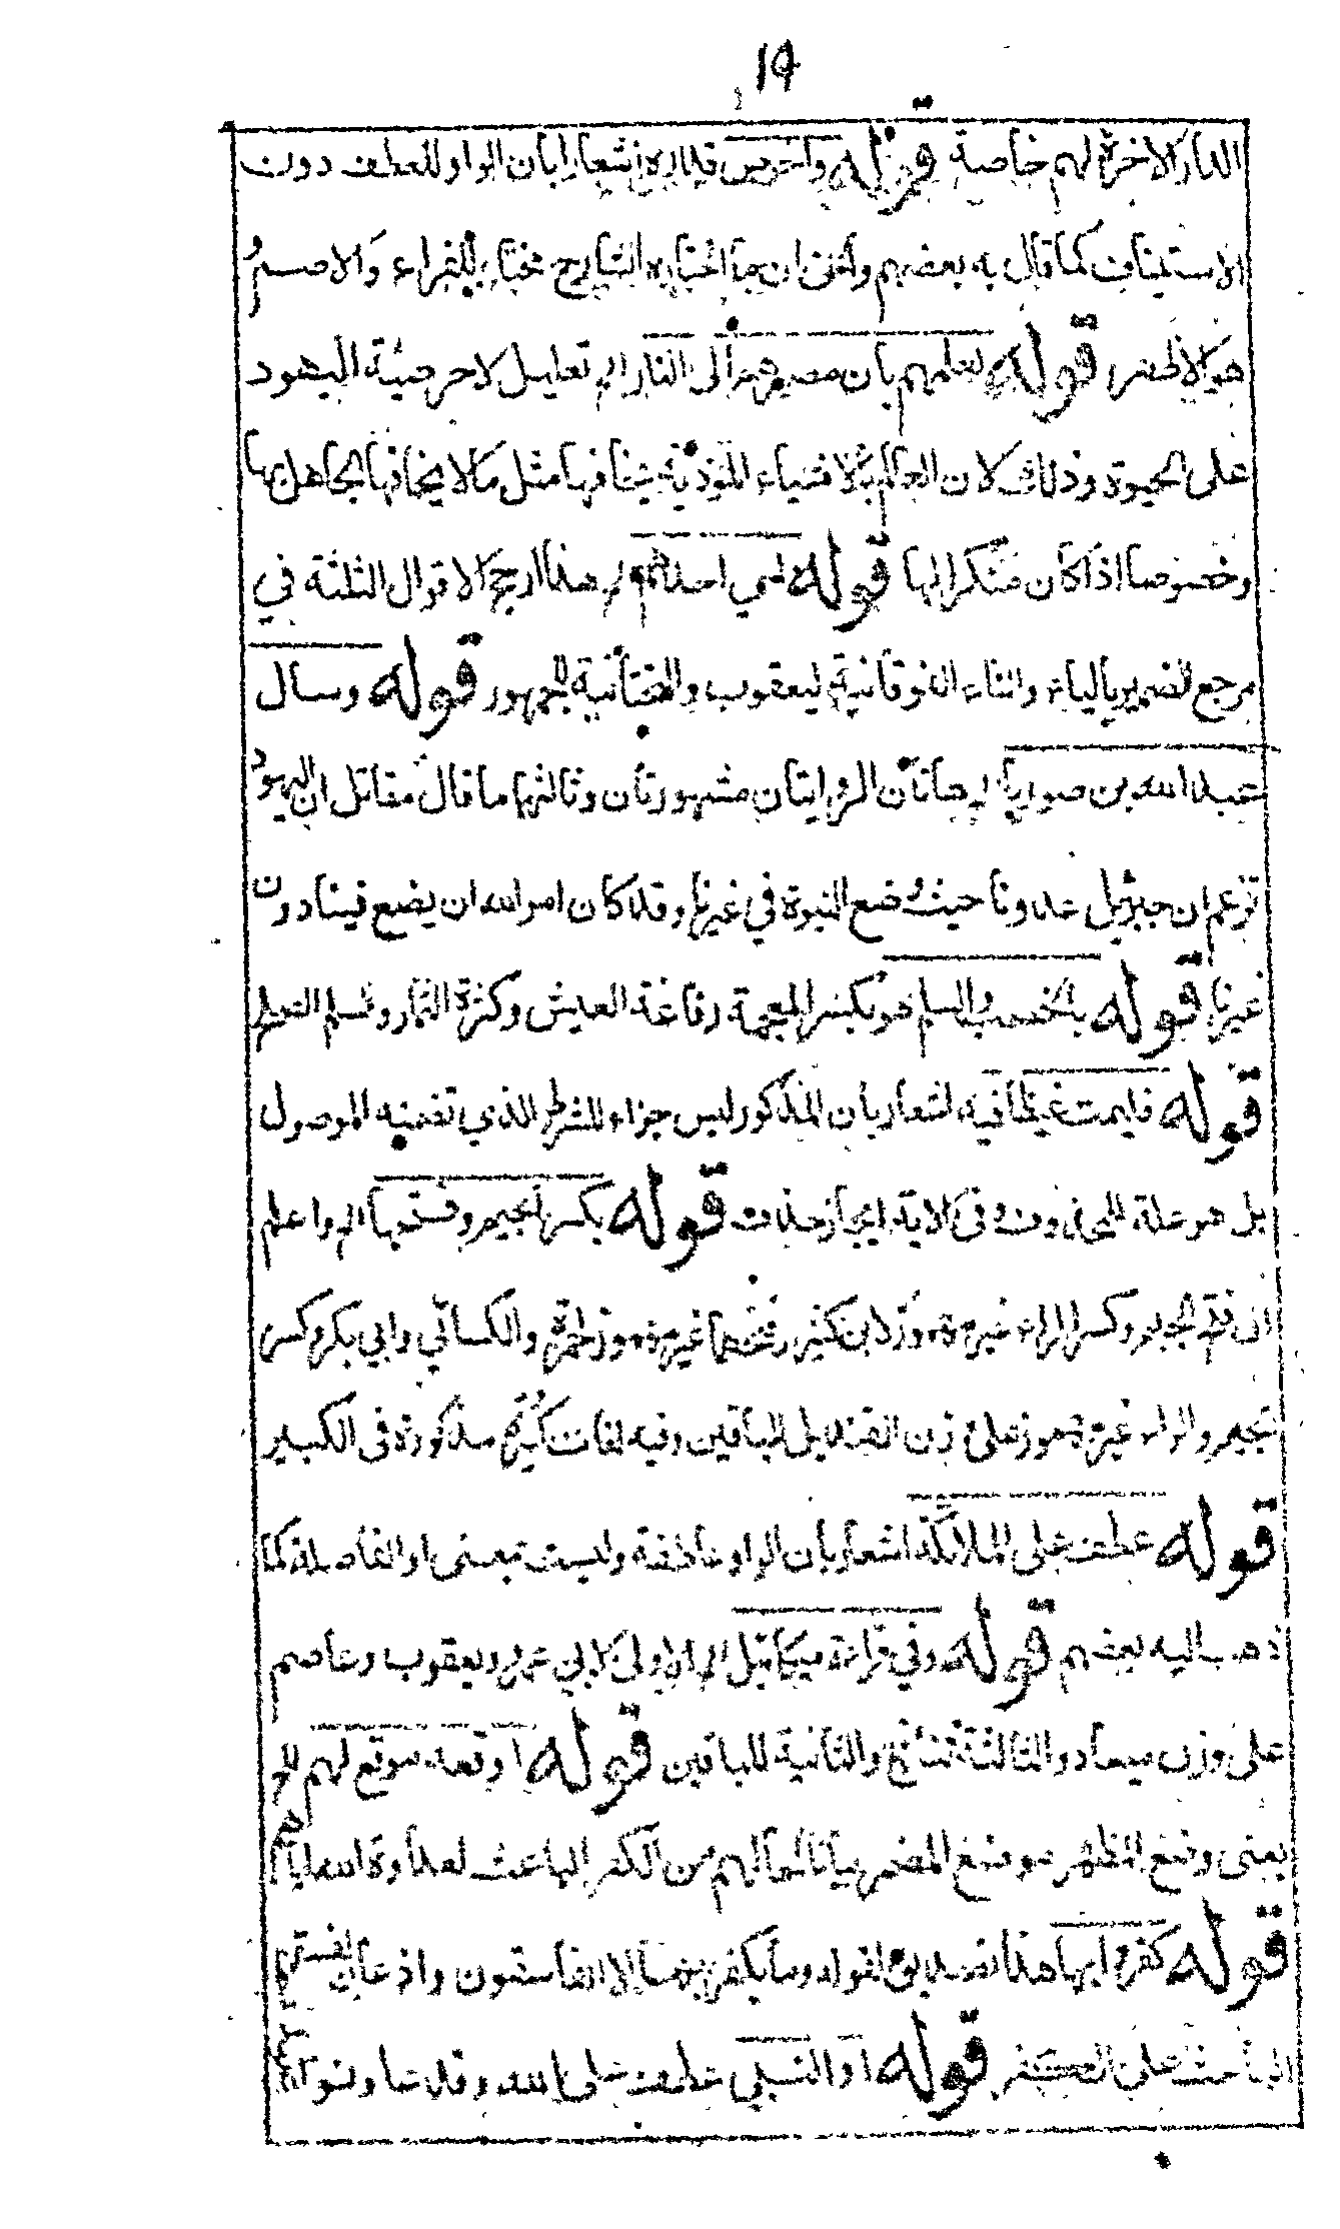 19
الدار الاخرة لهم خاصة قوله واحرص قدره اشعارا بان الواو للعطف دون
الاستيناف كما قال به بعضهم وان ما اختاره الشارح مختار الفراء والاصم
هو الاظهر قوله لعلمهم بان مصيرهم الى النار الخ تعليل لاحرصية اليهود
على الحيوة وذلك لان العالم بالاشياء المؤذية يخافها مثل ما لا يخافها الجاهل بها
وخصوصا اذا كان منكرا لها قوله اي احدهم الخ هذا ارجح الاقوال الثلثة في
مرجع الضمير بالياء والتاء الفوقانية ليعقوب والتحتانية للجمهور قوله وسال
عبد الله بن صوريا الخ هاتان الروايتان مشهورتان وثالثها ما قال مقاتل ان اليهود
تزعم ان جبريل عدونا حيث وضع النبوة في غيرنا وقد كان امر الله ان يضع فينا دون
غيرنا قوله بالخصب والسلم هو بكسر المعجمة رفاغة العيش وكثرة الثمار والسلم
قوله فليمت غيظا فيه اشعار بان المذكور ليس جزاء للشرط الذي تضمنه الموصول
بل هو علة للمحذوف وفي الاية ايجاز حذف قوله بكسر الجيم وفتحها الخ واعلم
ان فتح الجيم وكسر الراء غير مهموز لابن كثير وفتحهما غير مهموز لحمزة والكسائي وابي بكر وكسر
الجيم والراء غير مهموز على وزن القنديل للباقين وفيه لغات كثيرة مذكورة في الكبير
قوله عطف على الملائكة اشعار بان الواو عاطفة وليست بمعنى او الفاصلة كما
ذهب اليه بعضهم قوله وفي قراءة ميكائيل الخ الاولى لابي عمرو ويعقوب وعاصم
على وزن ميعاد والثالثة لنافع والثانية للباقين قوله اوقعه موقع لهم الخ
يعنى وضع المظهر موضع المضمر بيانا لحالهم من الكفر الباعث لعداوة الله اياهم
قوله كفروا بها هذا تصديق لقوله وما يكفر بها الا الفاسقون
الباعث على الكفر قوله او النبي عطف على الله وقد عاونوا